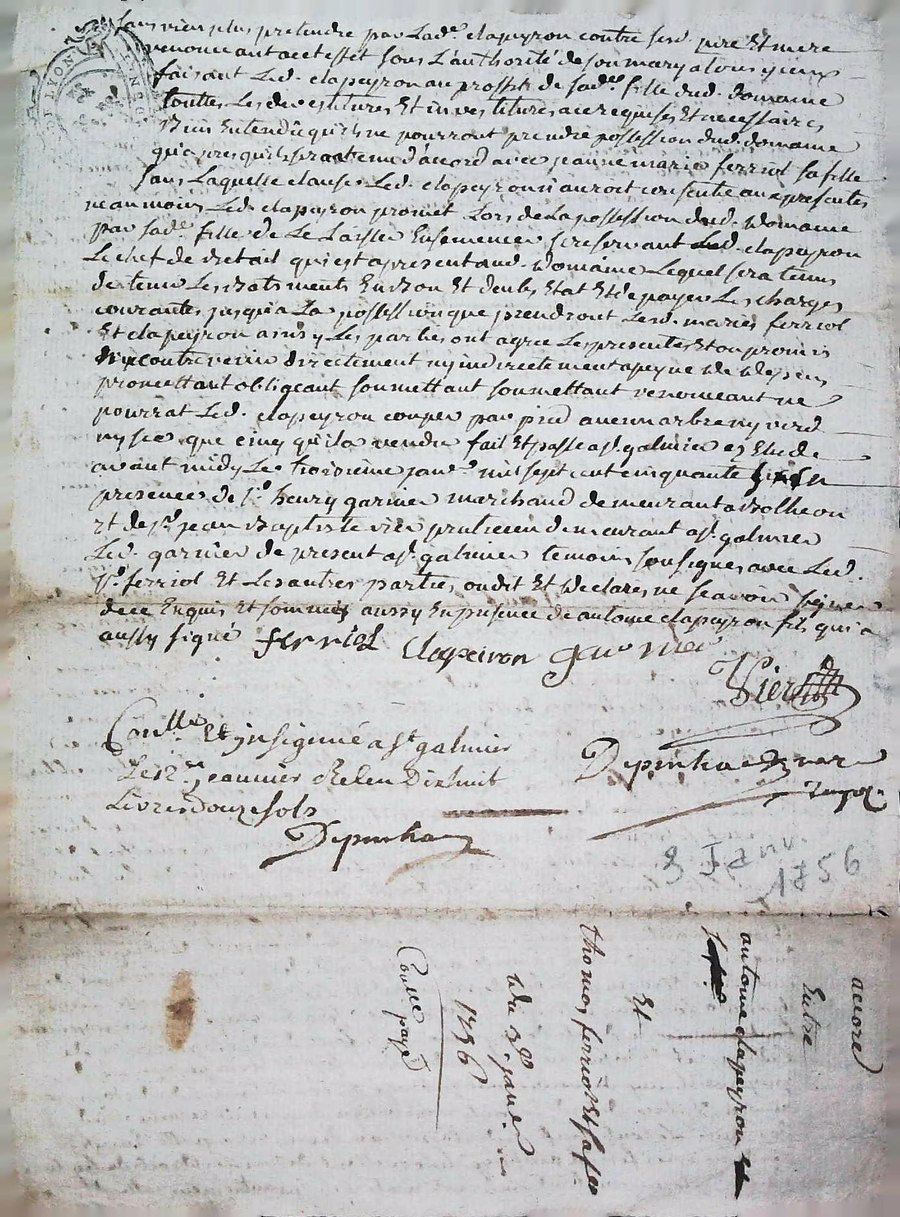 sans rien plus pretendre par lade. clapeyron contre sesd. pere et mere
renonceant a cet effet sous l'authorité de son mary a tous
faisant led. clapeyron au proffit de sade. fille dud. domaine
touttes les devestitures et investitures a ce requises et necessaires
bien entendu qu'ils ne pourront prendre possession dud. domaine
qu'apres qu'ils d'accord avec jeanne marie ferriol sa fille
sans laquelle clause led. clapeyron n'auroit consentie aux presentes
neanmoins led. clapeyron promet lors de la possession dud. domaine
par sade. fille de le laisser ensemencer se reservant led. clapeyron
le chef de betail qui est a present aud. domaine lequel sera tenu
de tenir les batiments en bon et deub estat et de payer les charges
courantes jusqu'a la possession que prendront lesd. mariés ferriol
et clapeyron ainsy les parties ont agree les presentes et ont promis
contrevenir directement ny indirectement a peyne de depens
promettant obligeant soumettant soumettant renonceant ne
pourrat led. clapeyron couper par pied aucun arbre ny verd
ny sec que cinq qu'il a vendu fait et passé a st. galmier ez etude
avant midy le troisieme janr. mil sept cent cinquante six en
presence de sr. henry garnier marchand demeurant a bolheon
et de sr. jean baptiste vier praticien demeurant a st. galmier
led. garnier de present a st. galmier temoins soussignes avec led.
sr. ferriol et les autres parties ont dit et declaré ne scavoir signer
de ce enquis et sommés aussy en presence de antoine clapeyron fils qui a
aussy signé ferriol clapeiron garnier
Vier
Conllé et insignué a st galmier
le 12e. janvier Relen Dixhuit
Livres douze sols
Depinhac
Depinhac
3 Janv.
1756
accord
Entre
antoine clapeyron
et
thomas ferriol et sa fe
du 3e. janvier
1756
Conllé
payé